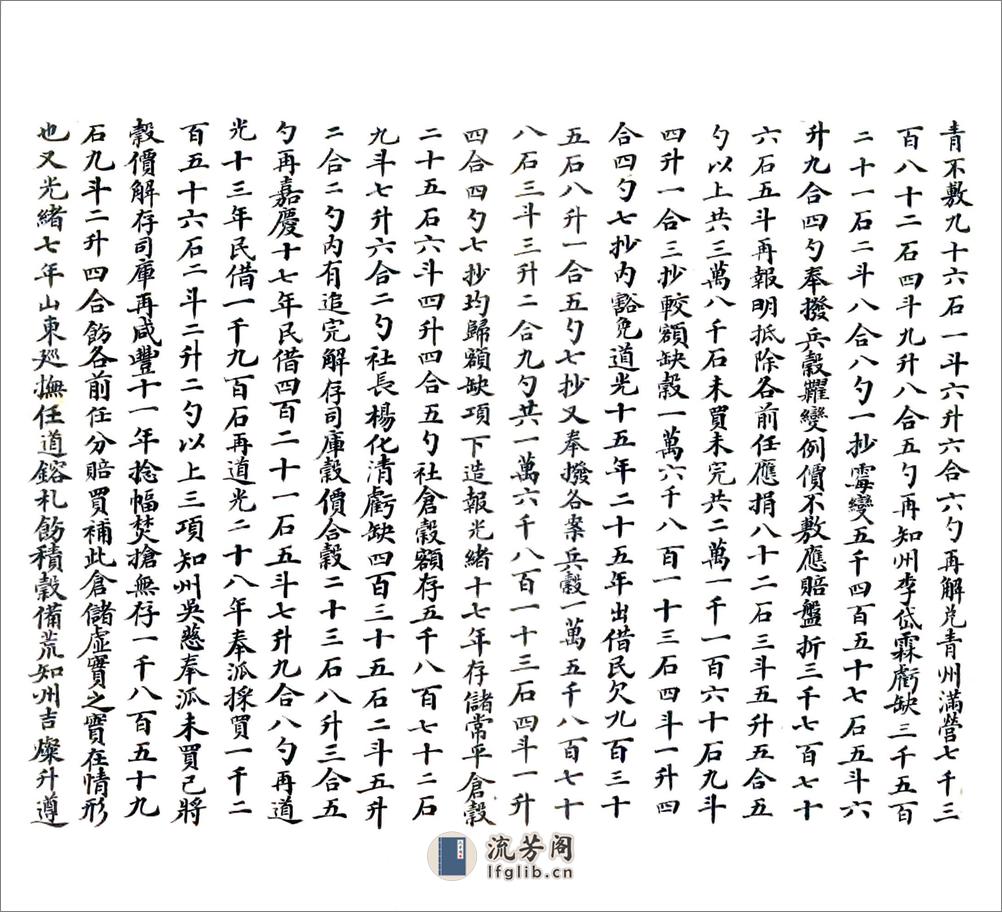 青不敷九十六石一斗六升六合六勺再解兌青州滿營七千三
百八十二石四斗九升八合五勺再知州李岱霖虧缺三千五百
二十一石二斗八合八勺一抄霉變五千四百五十七石五斗六
升九合四勺奉撥兵穀糶變例價不敷應賠盤折三千七百七十
六石五斗再報明抵除各前任應捐八十二石三斗五升五合五
勺以上共三萬八千石未買未完共二萬一千一百六十石九斗
四升一合三抄較額缺穀一萬六千八百一十三石四斗一升四
合四勺七抄內豁免道光十五年二十五年出借民欠九百三十
五石八升一合五勺七抄又奉撥各案兵穀一萬五千八百七十
八石三斗三升二合九勺共一萬六千八百一十三石四斗一升
四合四勺七抄均歸額缺項下造報光緒十七年存儲常平倉穀
二十五石六斗四升四合五勺社倉穀額存五千八百七十二石
九斗七升六合二勺社長楊化清虧缺四百三十五石二斗五升
二合二勺內有追完解存司庫穀價合穀二十三石八升三合五
勺再嘉慶十七年民借四百二十一石五斗七升九合八勺再道
光十三年民借一千九百石再道光二十八年奉派採買一千二
百五十六石二斗二升二勺以上三項知州吳慈奉派未買已將
穀價解存司庫再咸豐十一年捻幅焚搶無存一千八百五十九
石九斗二升四合飭各前任分賠買補此倉儲虛實之實在情形
也又光緒七年山東巡撫任道鎔札飭積穀備荒知州吉燦升遵
流芳閣
lfglib.cn